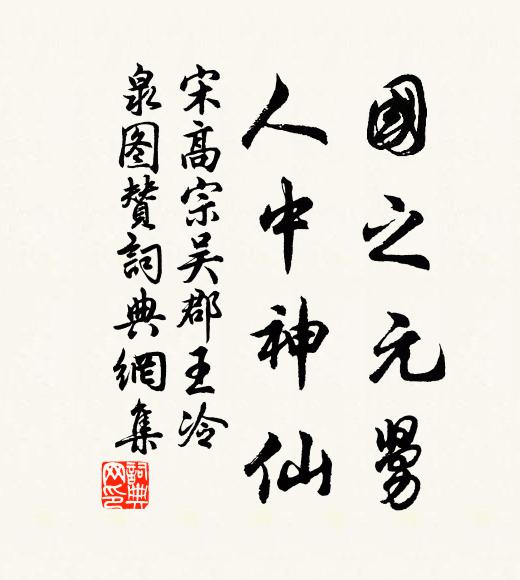 國之元舅
人中神仙
宋髙宗吴郡王冷
泉图賛詞典網集
詞典网印